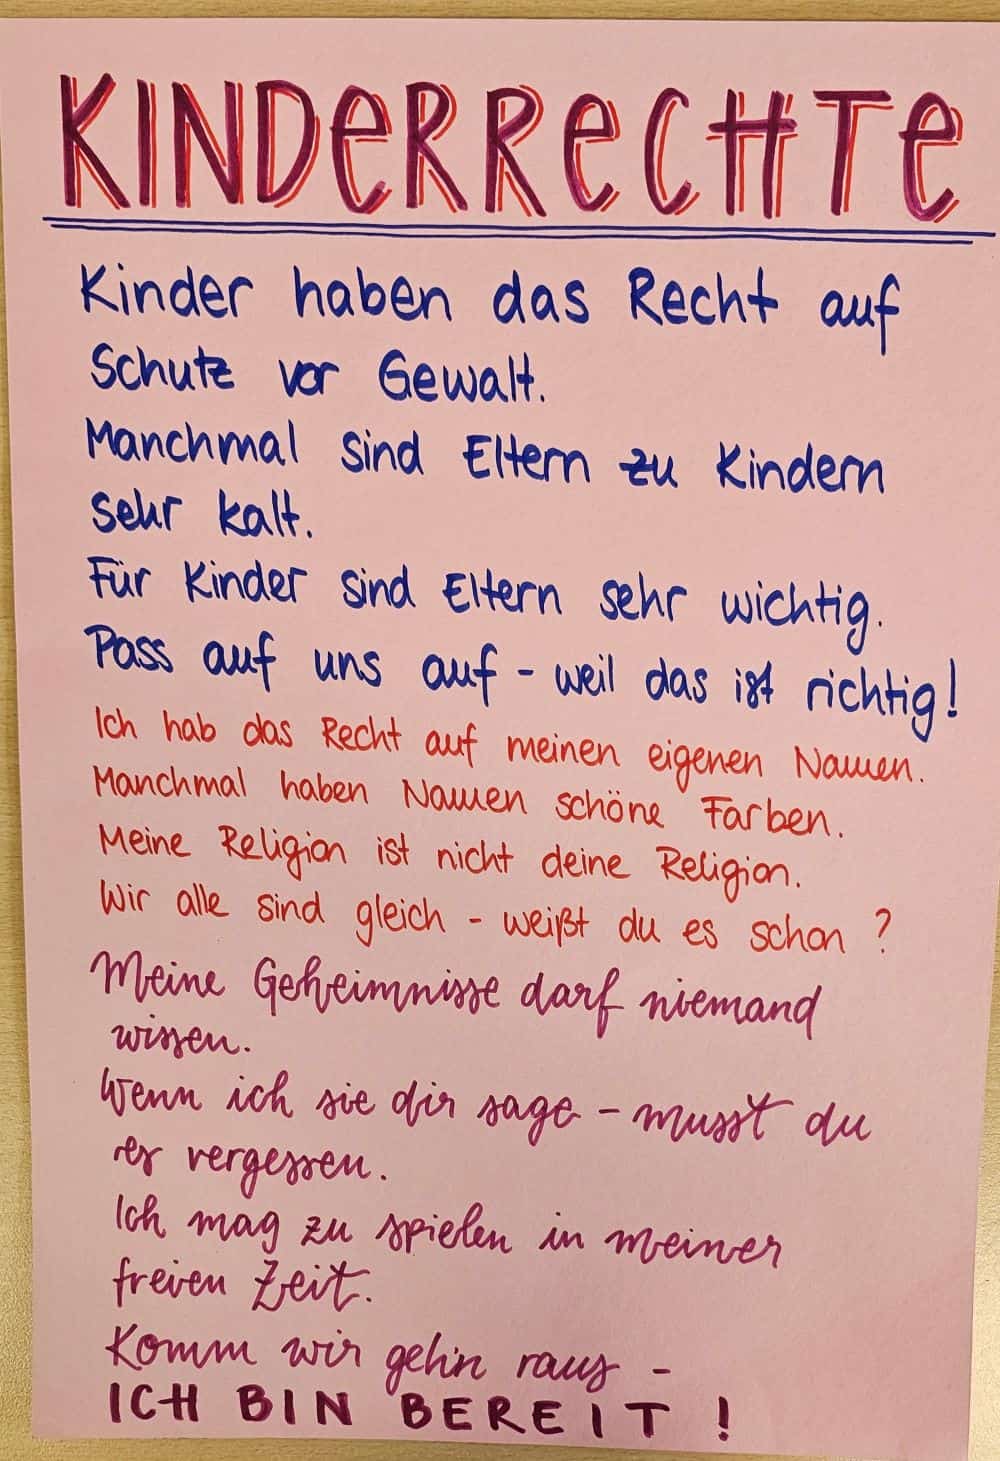 KINDERRECHTE
Kinder haben das Recht auf
Schutz vor Gewalt.
Manchmal sind Eltern zu Kindern
sehr kalt.
Für Kinder sind Eltern sehr wichtig.
Pass auf uns auf - weil das ist richtig!
Ich hab das Recht auf meinen eigenen Namen.
Manchmal haben Namen schöne Farben.
Meine Religion ist nicht deine Religion.
Wir alle sind gleich - weißt du es schon ?
Meine Geheimnisse darf niemand
wissen.
Wenn ich sie dir sage - musst du
es vergessen.
Ich mag zu spielen in meiner
freien Zeit.
Komm wir geh'n raus -
ICH BIN BEREIT !